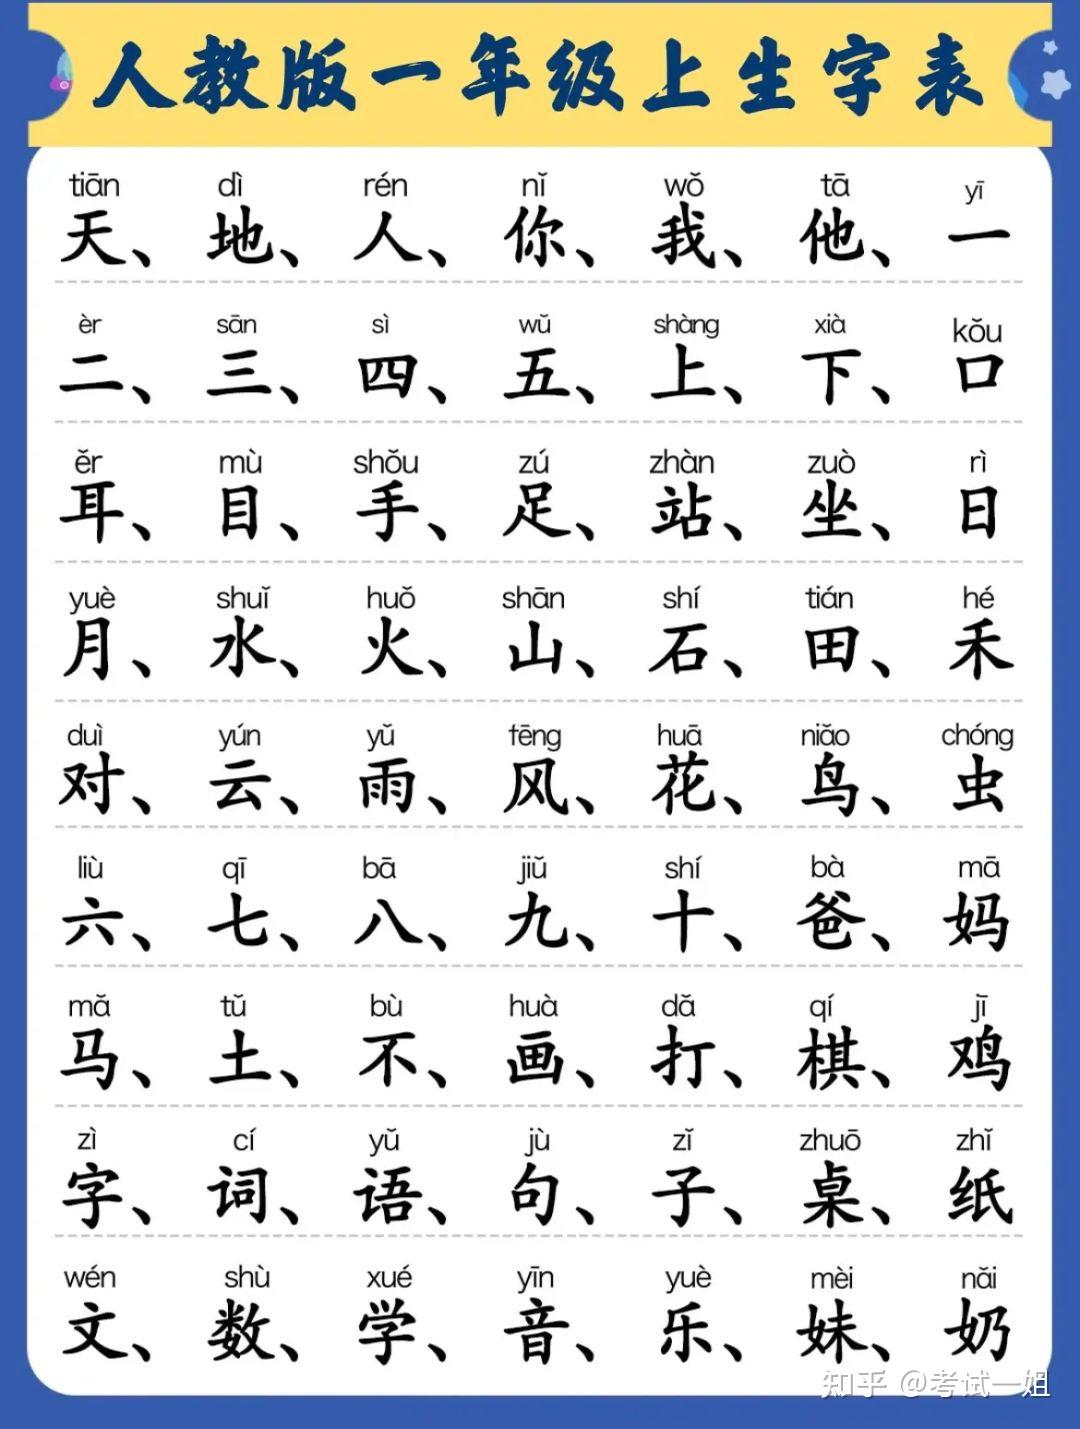 人教版一年级上生字表
tiān dì rén nǐ wǒ tā yī
天、地、人、你、我、他、一
èr sān sì wǔ shàng xià kǒu
二、三、四、五、上、下、口
ěr mù shǒu zú zhàn zuò rì
耳、目、手、足、站、坐、日
yuè shuǐ huǒ shān shí tián hé
月、水、火、山、石、田、禾
duì yún yǔ fēng huā niǎo chóng
对、云、雨、风、花、鸟、虫
liù qī bā jiǔ shí bà mā
六、七、八、九、十、爸、妈
mǎ tǔ bù huà dǎ qí jī
马、土、不、画、打、棋、鸡
zì cí yǔ jù zǐ zhuō zhǐ
字、词、语、句、子、桌、纸
wén shù xué yīn yuè mèi nǎi
文、数、学、音、乐、妹、奶
知乎 @考试一姐